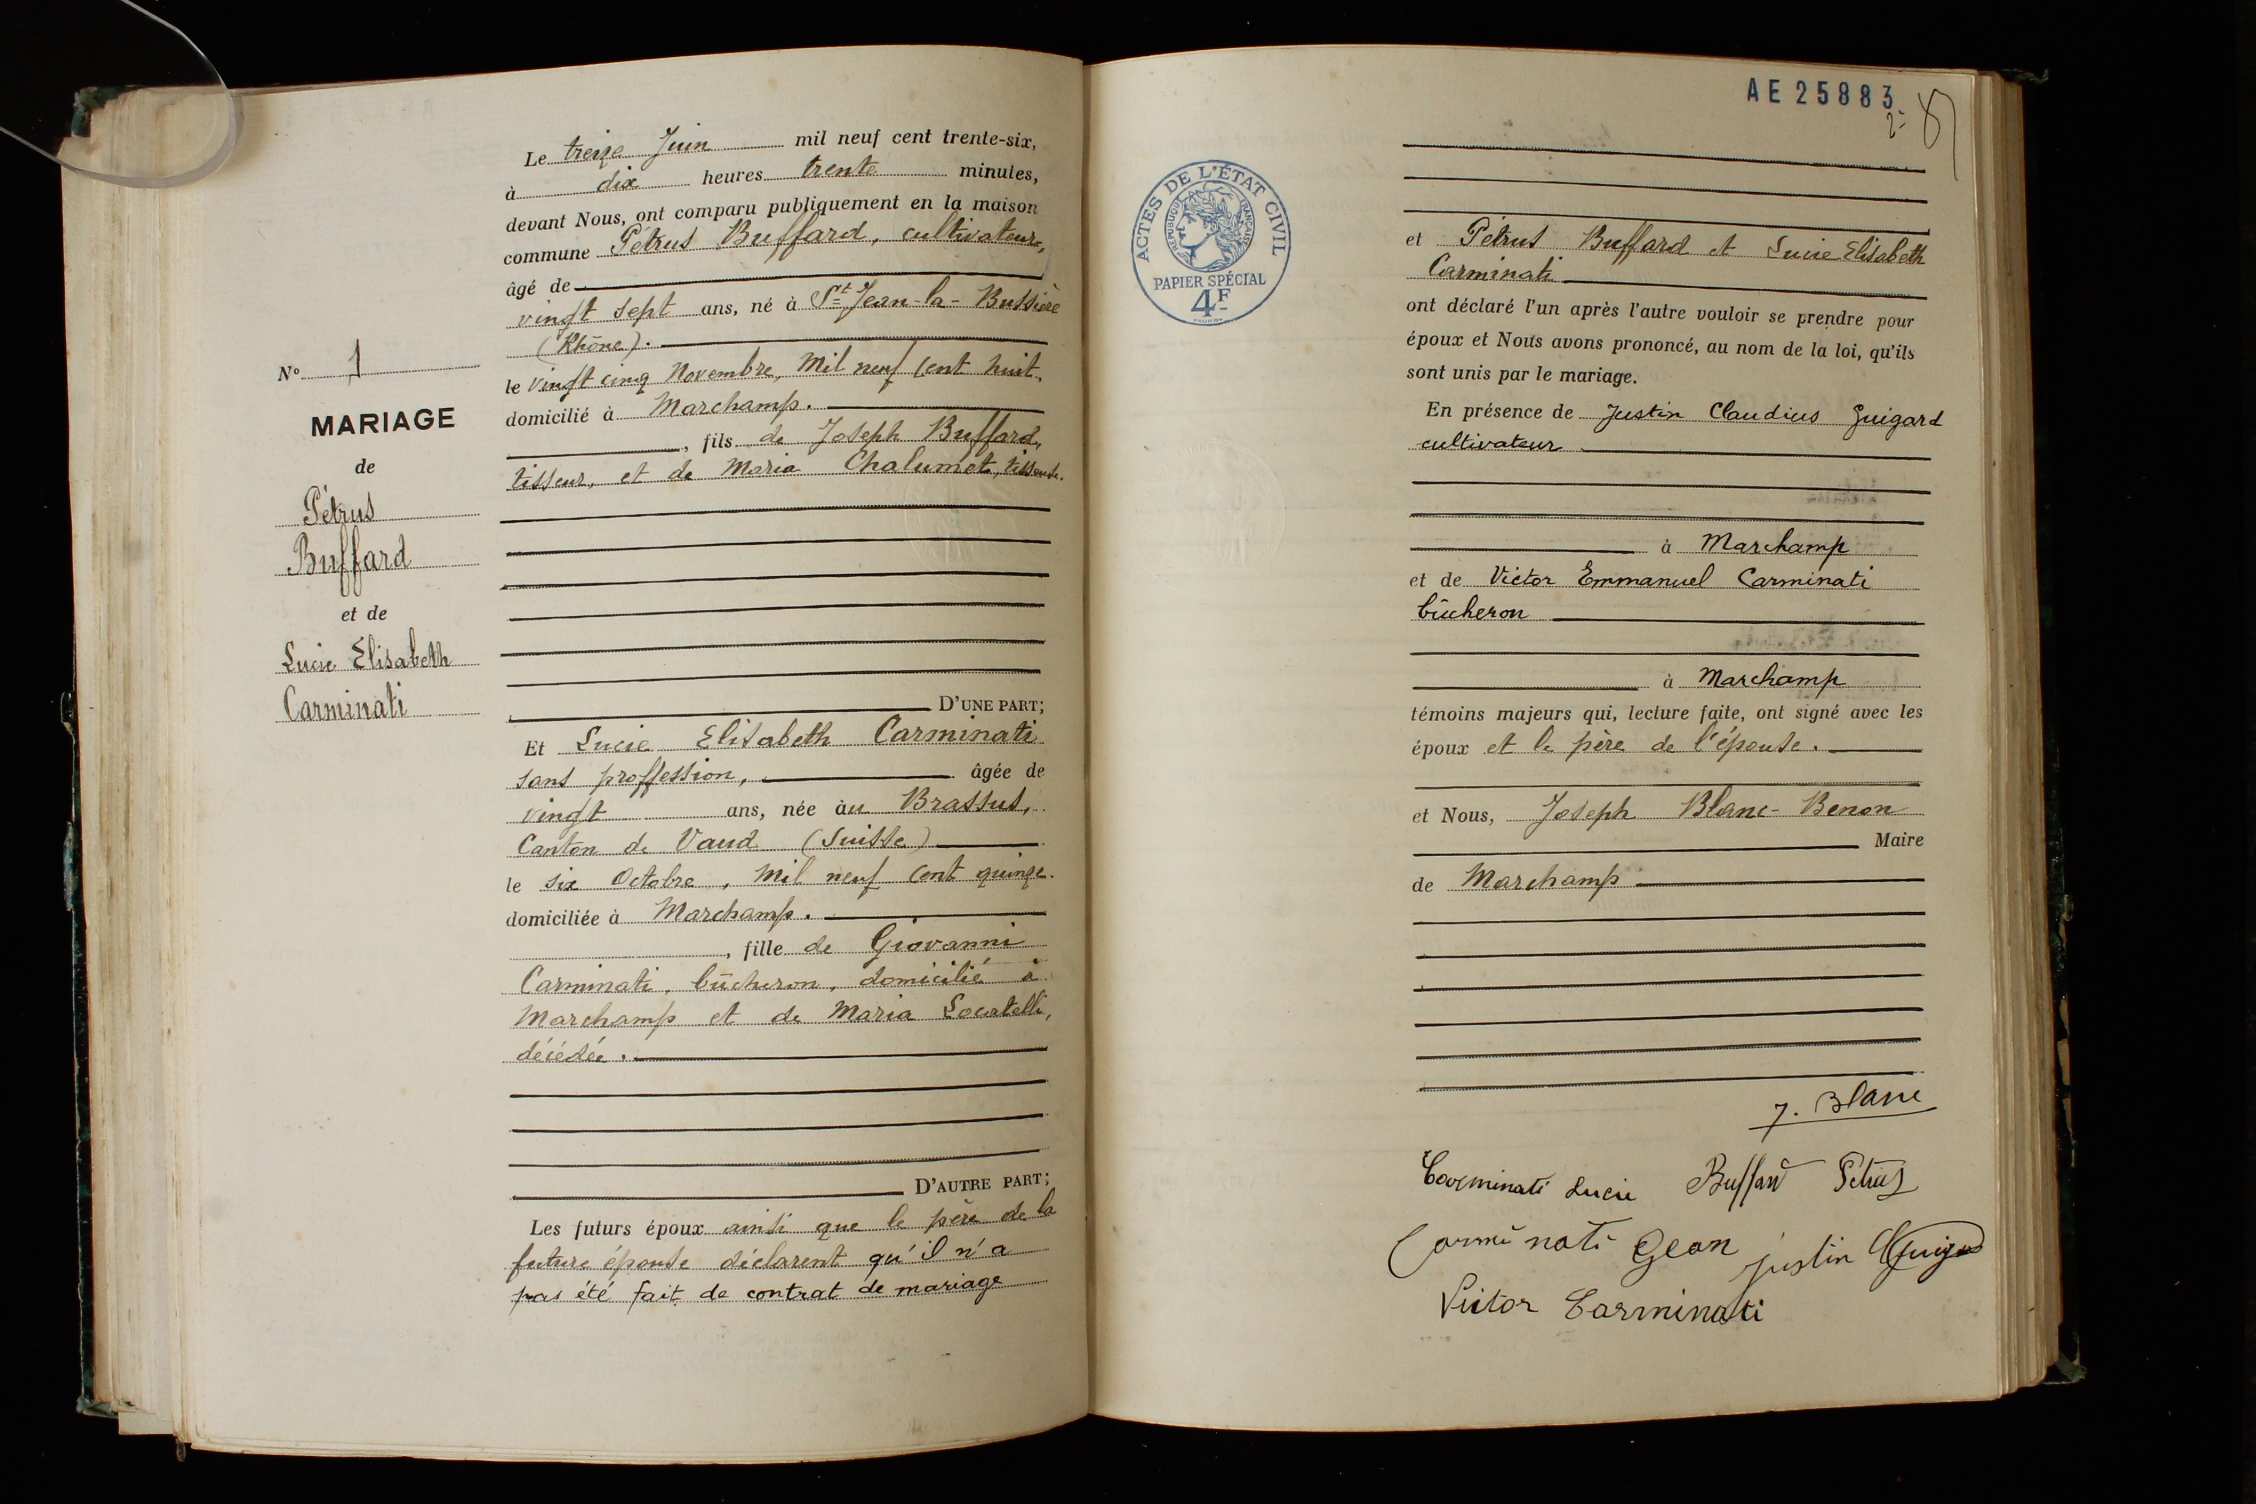 N° 1
MARIAGE
de
Pétrus
Buffard
et de
Lucie Elisabeth
Carminati
Le treize Juin mil neuf cent trente-six,
à dix heures trente minutes,
devant Nous, ont comparu publiquement en la maison
commune Pétrus Buffard, cultivateur,
âgé de
vingt sept ans, né à St Jean-la-Bussière
(Rhône).
le vingt cinq Novembre, mil neuf cent huit,
domicilié à Marchamp.
, fils de Joseph Buffard,
tisseur, et de Maria Chalumet, tisseuse.
D'UNE PART;
Et Lucie Elisabeth Carminati
sans proffession, âgée de
vingt ans, née au Brassus,
Canton de Vaud (Suisse)
le six Octobre, mil neuf cent quinze.
domiciliée à Marchamp.
, fille de Giovanni
Carminati, bûcheron, domicilié à
Marchamp et de Maria Locatelli,
décédée.
D'AUTRE PART;
Les futurs époux ainsi que le père de la
future épouse déclarent qu'il n'a
pas été fait de contrat de mariage
AE 25883
2
ACTES DE L'ÉTAT CIVIL
RÉPUBLIQUE FRANÇAISE
PAPIER SPÉCIAL
4F
et Pétrus Buffard et Lucie Elisabeth
Carminati
ont déclaré l'un après l'autre vouloir se prendre pour
époux et Nous avons prononcé, au nom de la loi, qu'ils
sont unis par le mariage.
En présence de Justin Claudius Guigard
cultivateur
à Marchamp
et de Victor Emmanuel Carminati
bûcheron
à Marchamp
témoins majeurs qui, lecture faite, ont signé avec les
époux et le père de l'épouse.
et Nous, Joseph Blanc-Benon
Maire
de Marchamp
J. Blanc
Carminati Lucie Buffard Pétrus
Carminati Gean justin Guigard
Victor Carminati